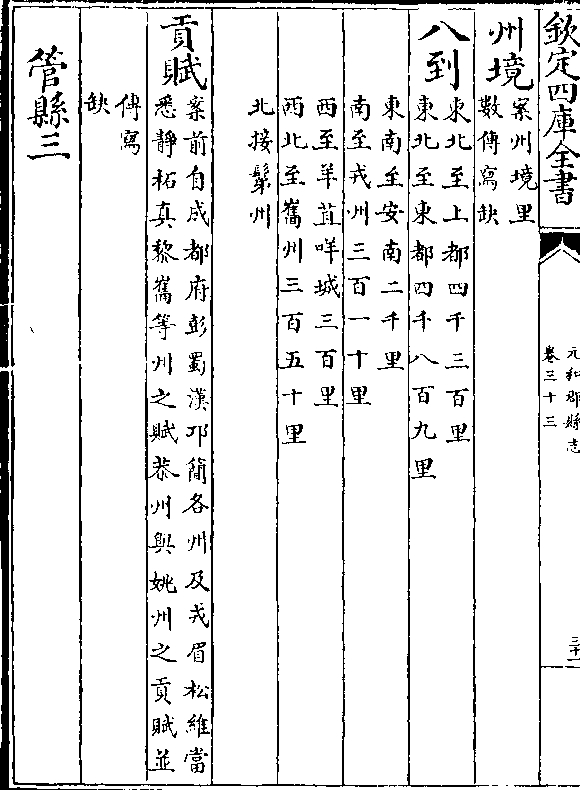 欽定四庫全書
元和郡縣志
卷三十三
三十一
州境
案州境里
數傳寫缺
八到
東北至上都四千三百里
東北至東都四千八百九里
東南至安南二千里
南至戎州三百一十里
西至羊苴咩城三百里
西北至巂州三百五十里
北接髳州
貢賦
案前自成都府彭蜀漢邛簡各州及戎眉松維當
悉靜柘真黎巂等州之賦恭州與姚州之貢賦並
傳寫
缺
管縣三